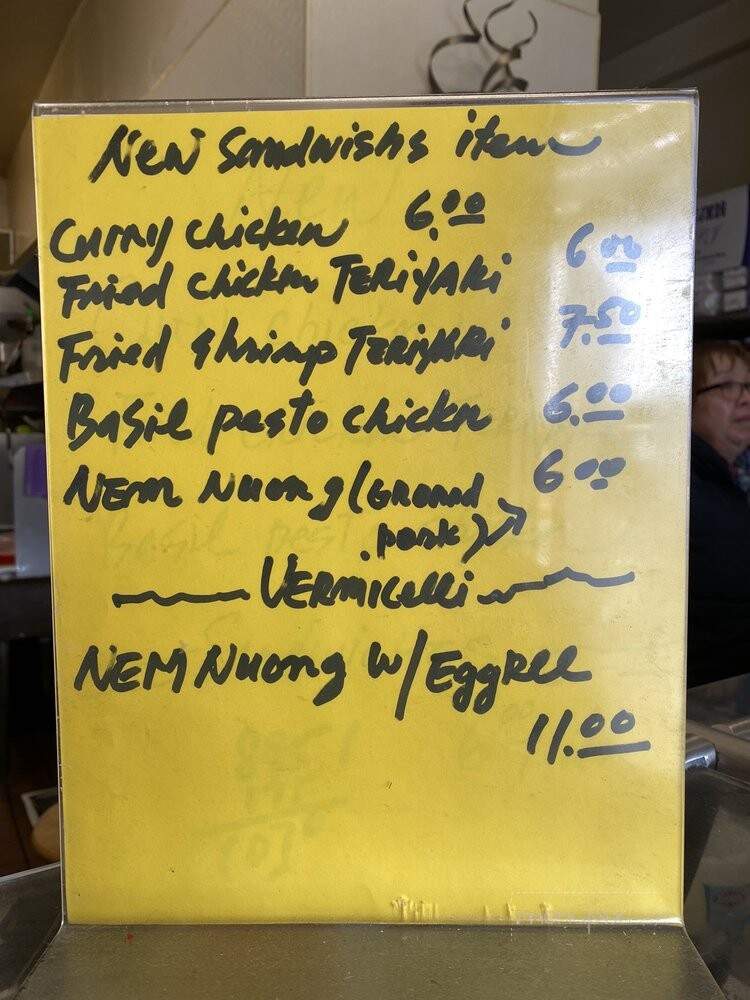 New Sandwishs item
Curry chicken 6.00
Fried chicken TERIYAKI 6.00
Fried shrimp TERIYAKI 7.50
Basil pesto chicken 6.00
NEM NUONG (GROUND 6.00
pork)
VERMICELLI
NEM NUONG W/ EggRLL
11.00